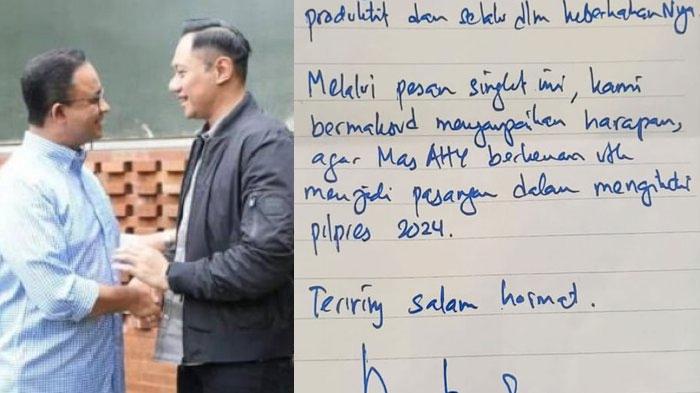 produktif dan selalu dlm keberkahanNya
Melalui pesan singkat ini, kami
bermaksud menyampaikan harapan,
agar Mas AHY berkenan utk
menjadi pasangan dalam mengikuti
pilpres 2024.
Teriring salam hormat.